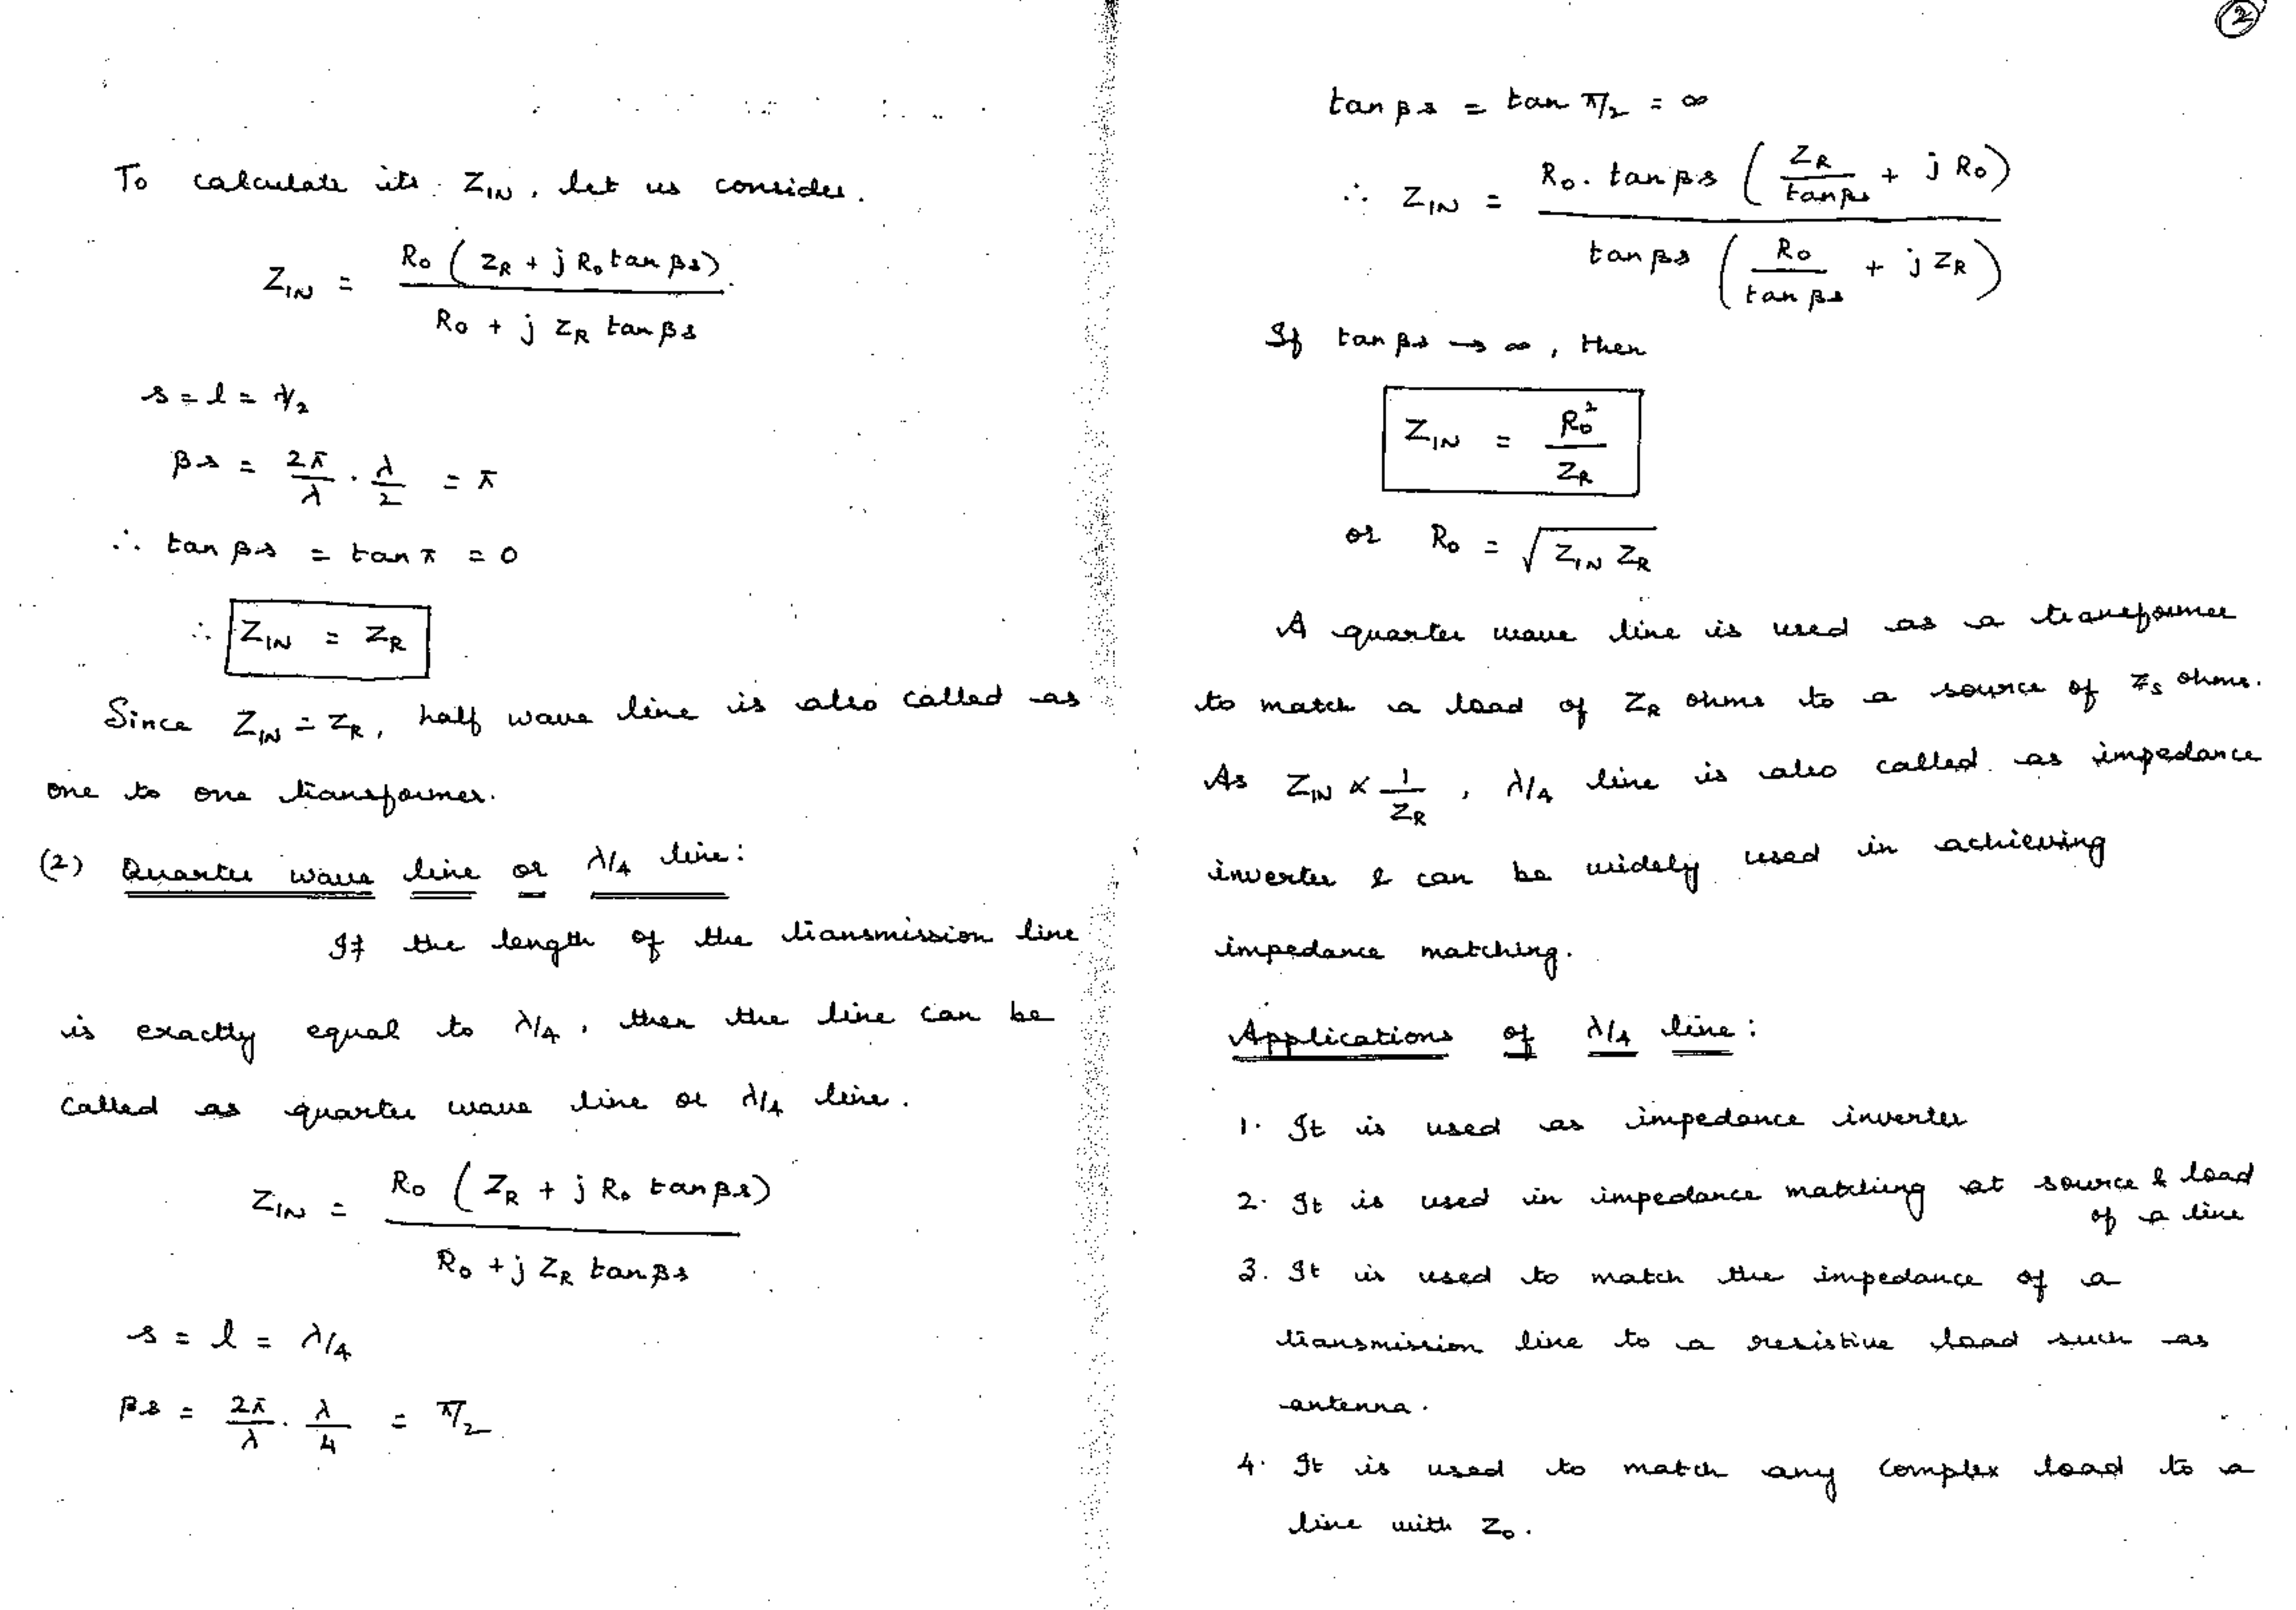 To calculate its Z_IN, let us consider.
Z_IN = R₀ ( Z_R + j R₀ tan βs) / R₀ + j Z_R tan βs
s = l = λ/2
βs = 2π/λ · λ/2 = π
∴ tan βs = tan π = 0
∴ Z_IN = Z_R
Since Z_IN = Z_R, half wave line is also called as
one to one transformer.
(2) Quarter wave line or λ/4 line:
If the length of the transmission line
is exactly equal to λ/4, then the line can be
called as quarter wave line or λ/4 line.
Z_IN = R₀ ( Z_R + j R₀ tan βs) / R₀ + j Z_R tan βs
s = l = λ/4
βs = 2π/λ · λ/4 = π/2
2
tan βs = tan π/2 = ∞
∴ Z_IN = R₀. tan βs ( Z_R/tan βs + j R₀) / tan βs ( R₀/tan βs + j Z_R )
If tan βs → ∞, then
Z_IN = R₀²/Z_R
or R₀ = √Z_IN Z_R
A quarter wave line is used as a transformer
to match a load of Z_R ohms to a source of Z_S ohms.
As Z_IN ∝ 1/Z_R, λ/4 line is also called as impedance
inverter & can be widely used in achieving
impedance matching.
Applications of λ/4 line:
1. It is used as impedance inverter
2. It is used in impedance matching at source & load
of a line
3. It is used to match the impedance of a
transmission line to a resistive load such as
antenna.
4. It is used to match any complex load to a
line with Z₀.